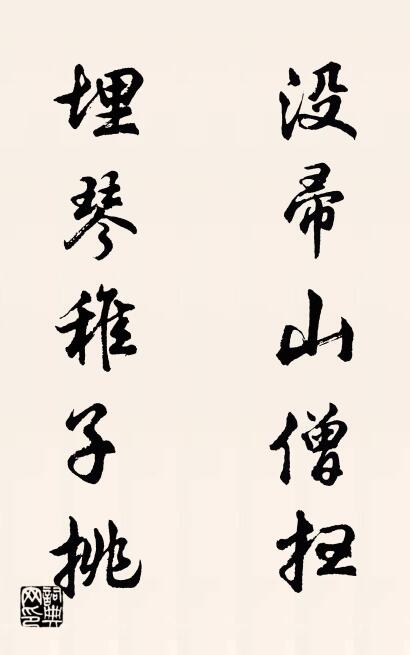 没帚山僧扫
埋琴稚子挑
詞典
网印